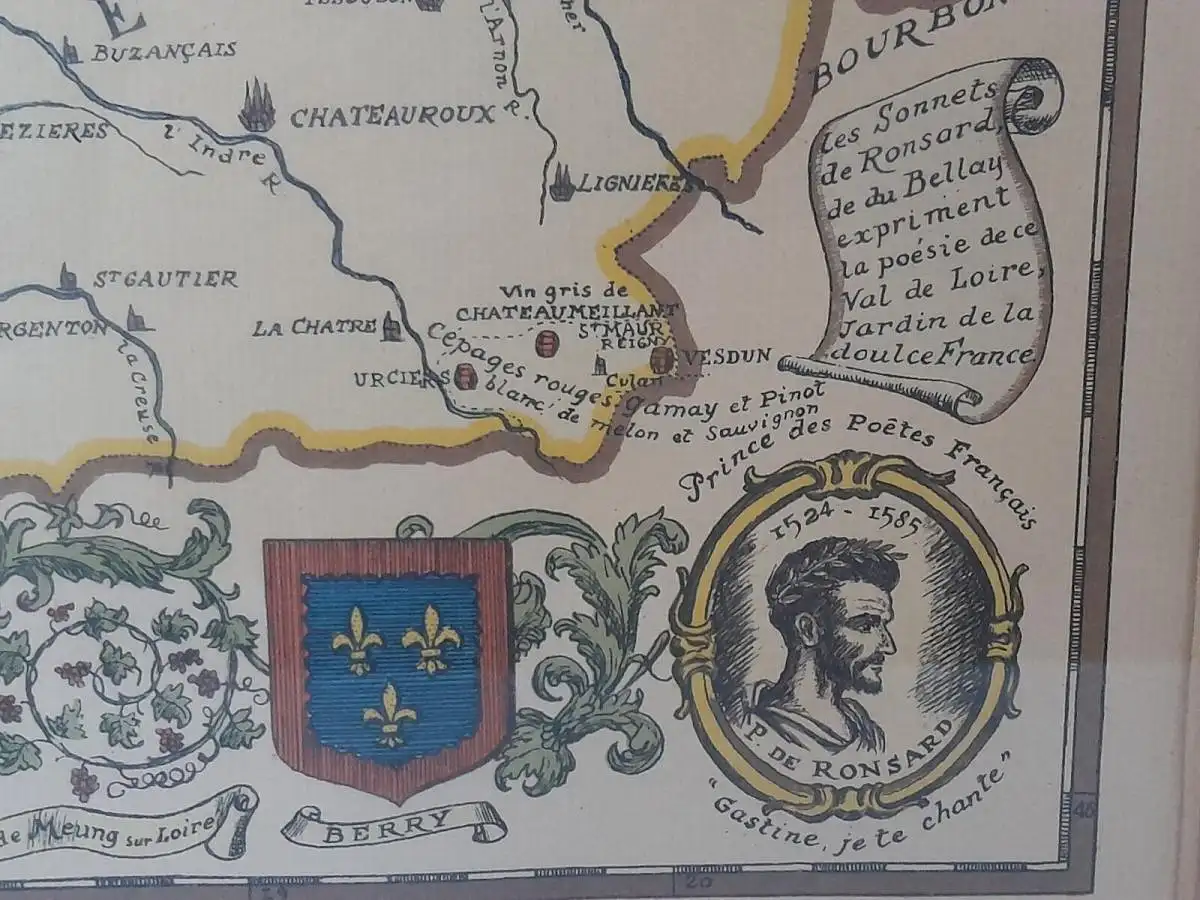 BUZANÇAIS
l'Arnon R.
BOURBON
CHATEAUROUX
EZIERES
l'Indre R
LIGNIERES
Les Sonnets
de Ronsard,
de du Bellay
expriment
la poésie de ce
Val de Loire,
Jardin de la
doulce France
ST GAUTIER
ARGENTON
la Creuse R
LA CHATRE
Vin gris de
CHATEAUMEILLANT
ST MAUR
REIGNY
VESDUN
URCIERS
Culan
Cépages rouges: gamay et Pinot
blanc: de melon et Sauvignon
Prince des Poëtes Français
1524 - 1585
P. DE RONSARD
"Gastine, je te chante"
de Meung sur Loire
BERRY
20